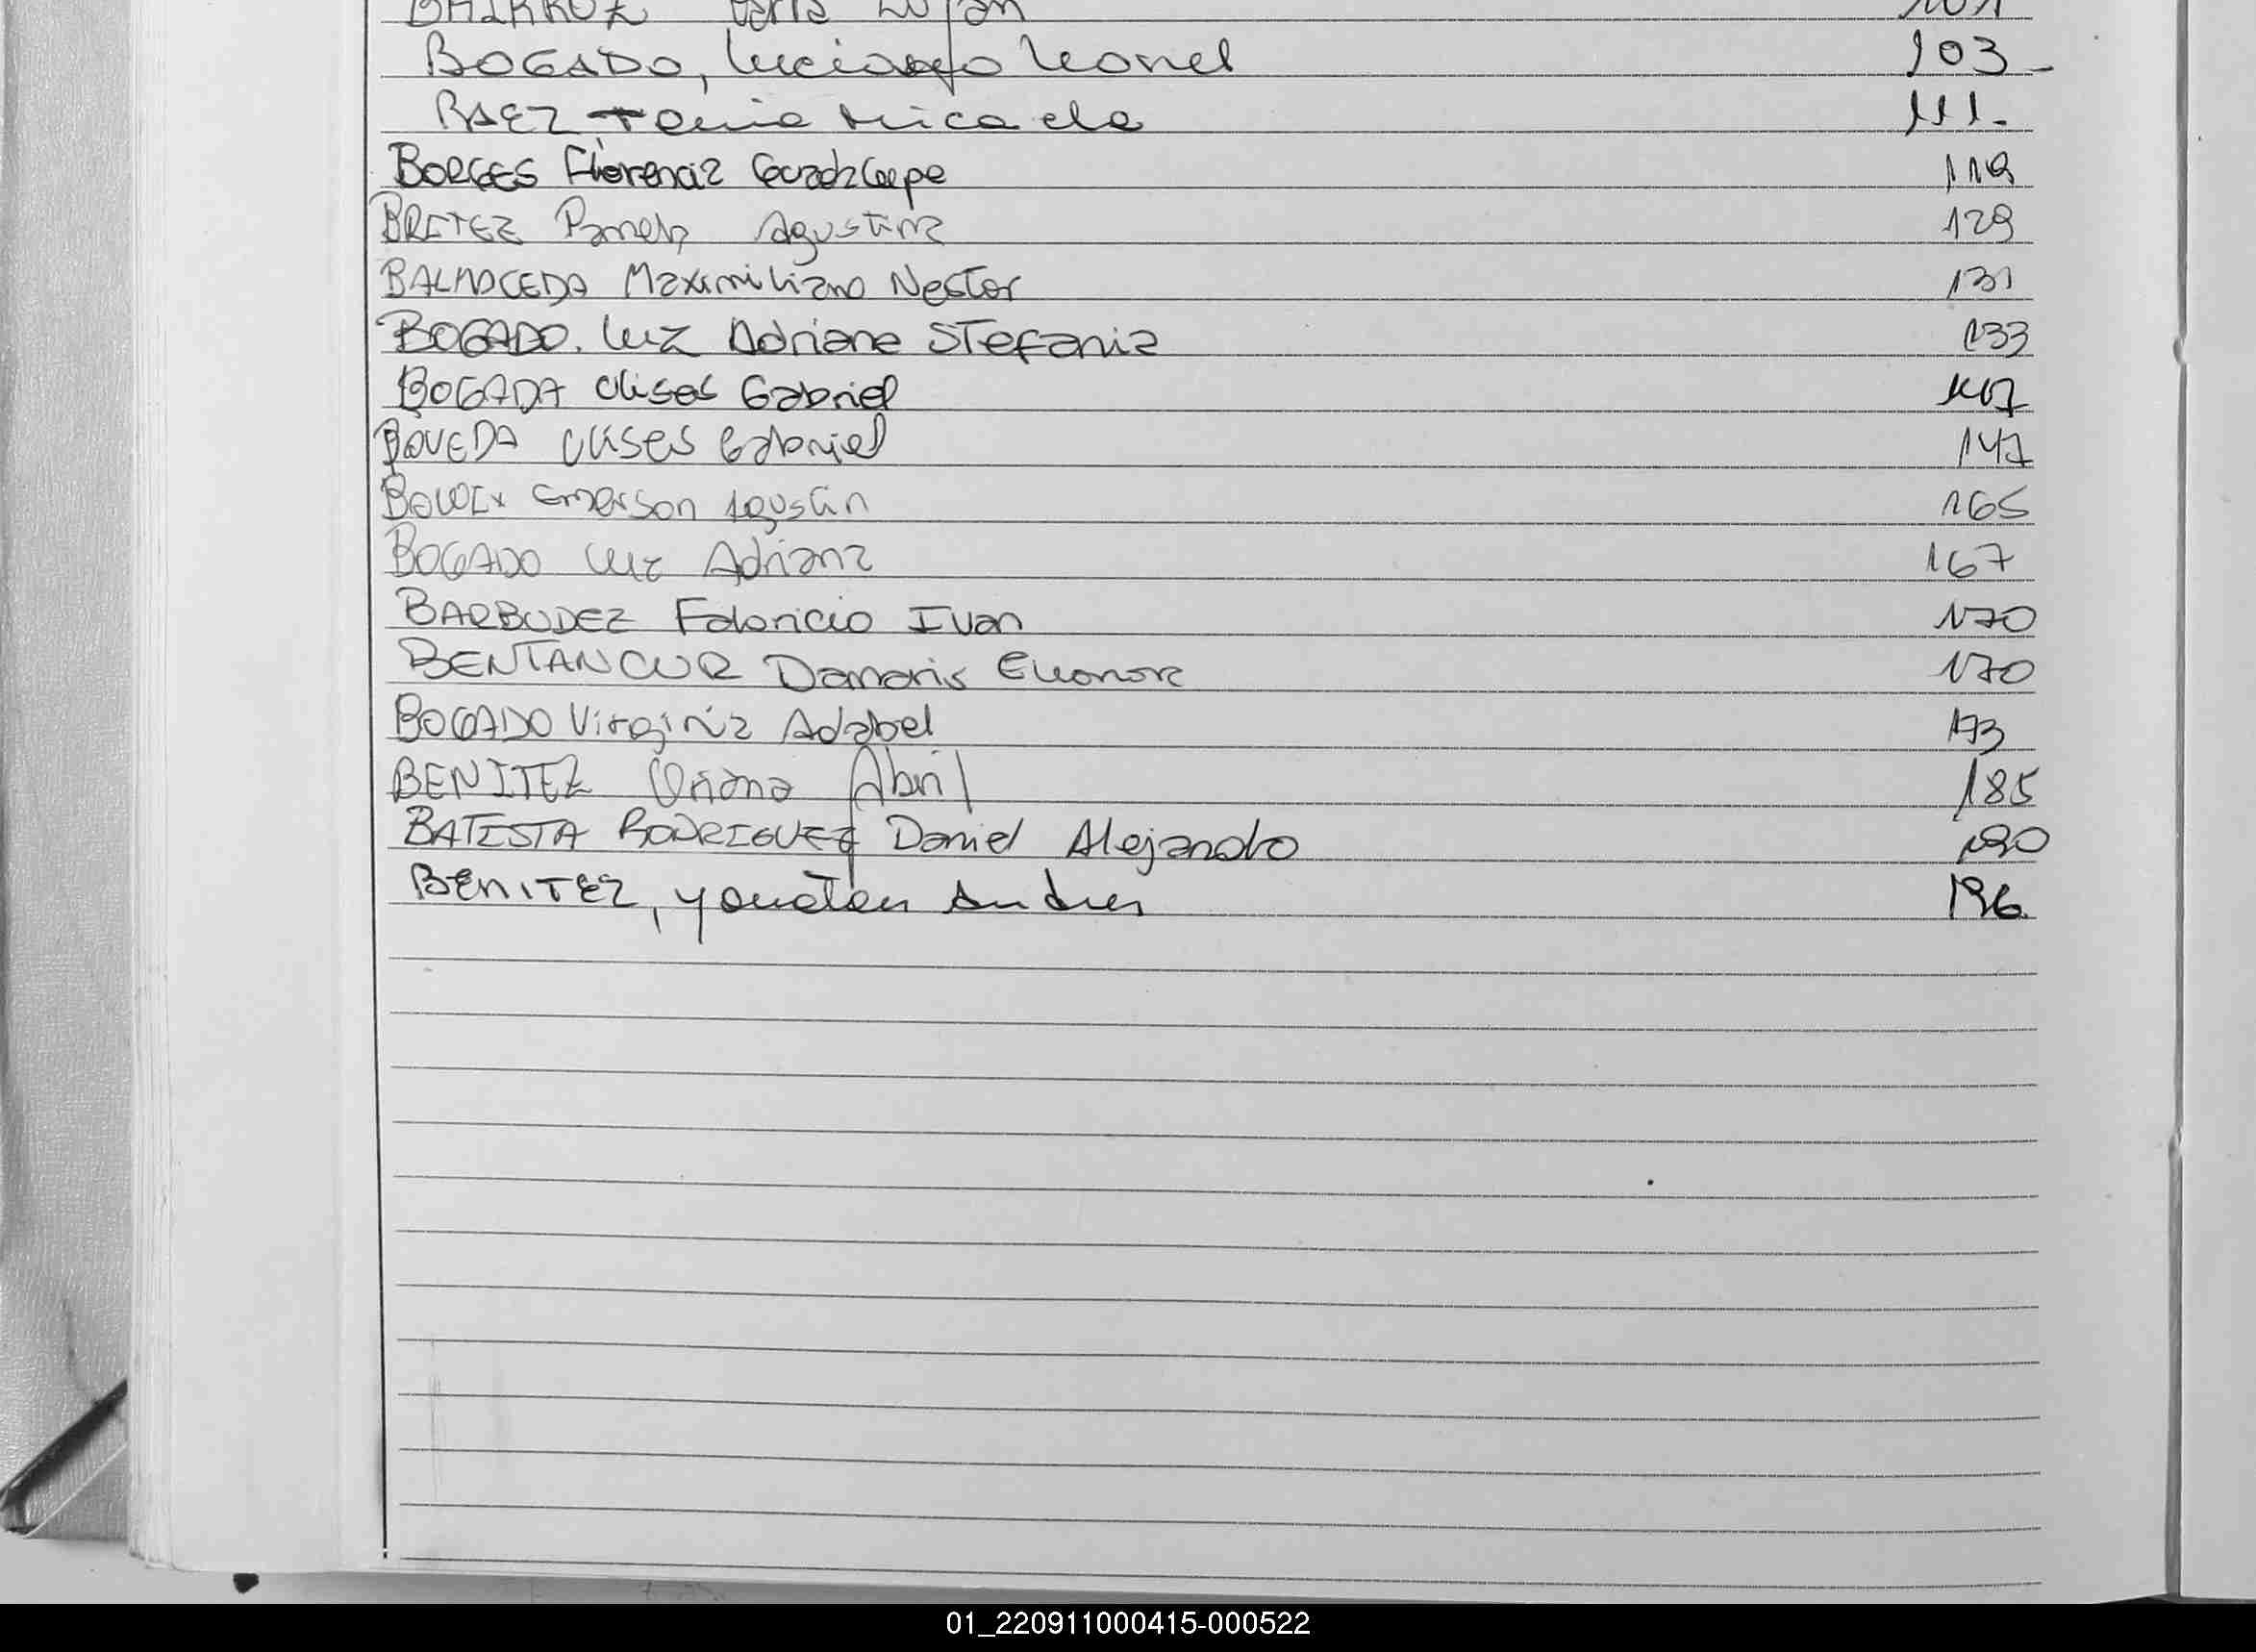 101
BOGADO, Luciano Leonel 103-
BAEZ, Tania Micaela 111.
BORGES Florencia Guadalupe 119
BRITEZ Pamela Agustina 129
BALMACEDA Maximiliano Nestor 131
BOGADO. Luz Adriana Stefania 133
BOGADA Ulises Gabriel
BOVEDA Ulises Gabriel 147
Emerson Agustin 165
BOGADO Luz Adriana 167
BARBUDEZ Fabricio Ivan 170
BENTANCUR Damaris Eleonora 170
BOGADO Virginia Adabel 173
BENITEZ Oriana Abril 185
BATISTA RODRIGUEZ Daniel Alejandro 190
BENITEZ, Yonatan Andres 196.
01_220911000415-000522